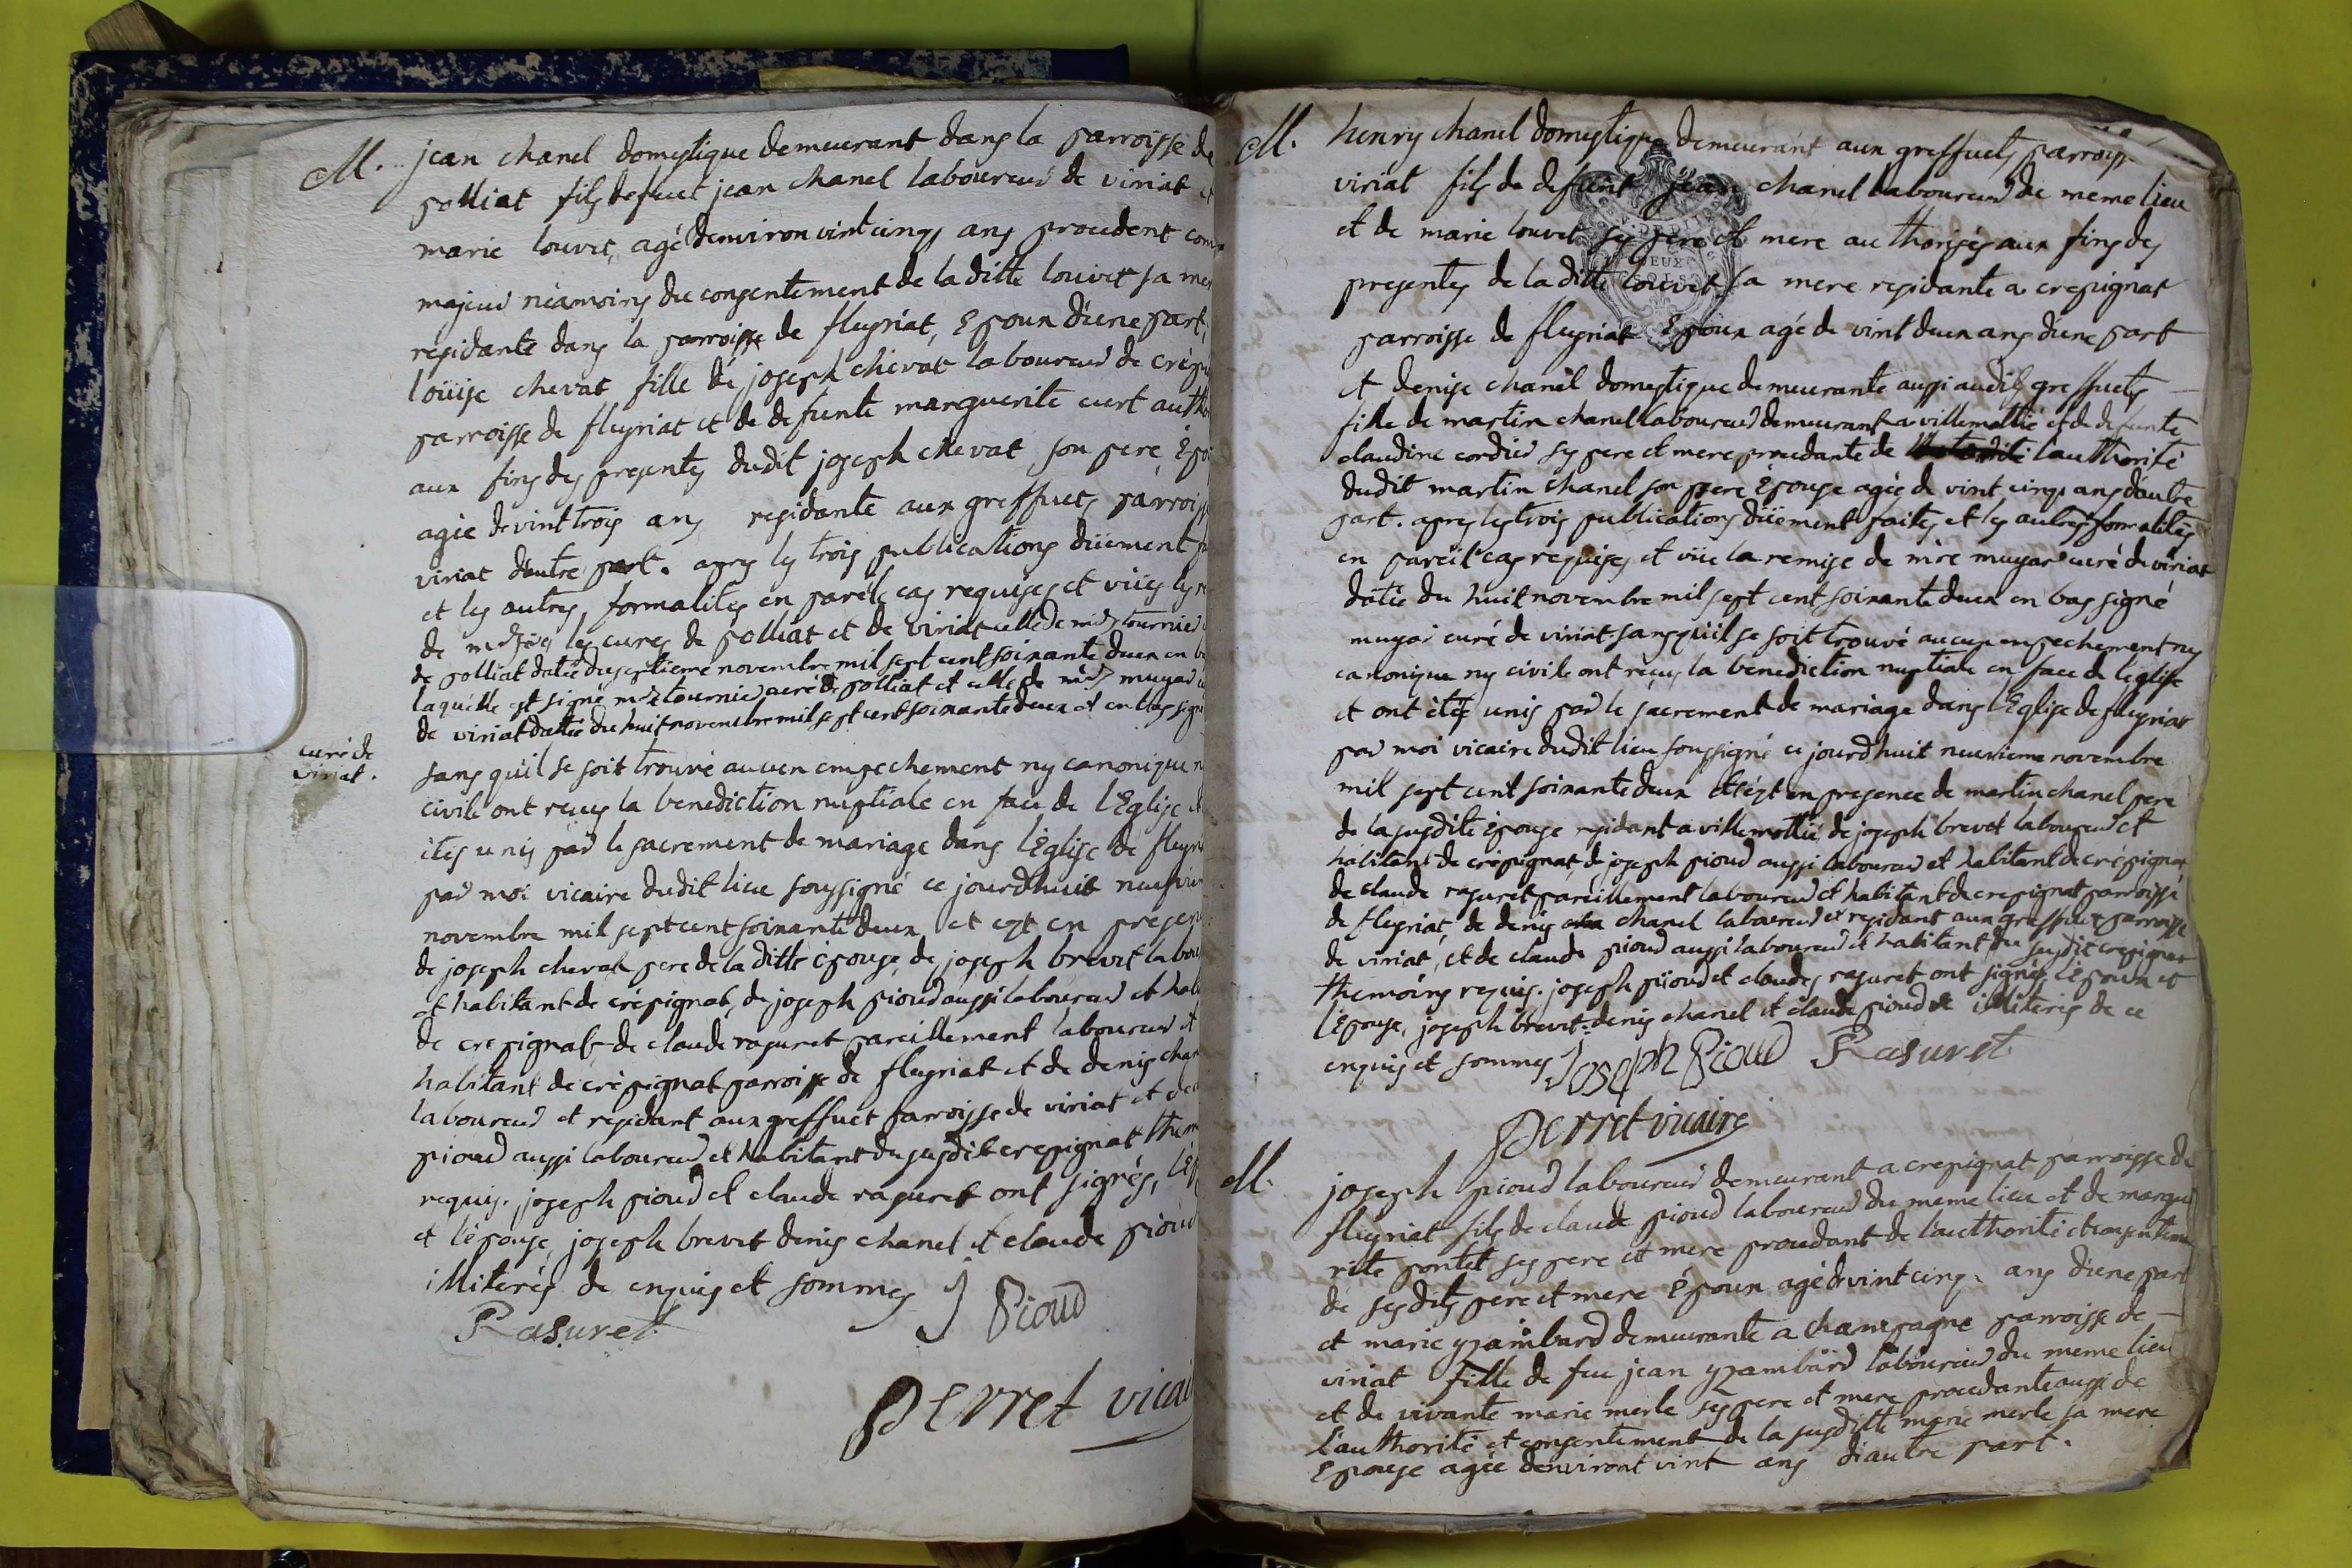 M. jean chanel domestique demeurant dans la parroisse de
polliat fils defuet jean chanel laboureur de viriat et
marie louvet, agé denviron vint cinq ans procedent com
majeur néamoins du consentement de la ditte louvet sa mer
residante dans la parroisse de fleyriat, Epoux d'une part,
loüise chevat fille de joseph chevat laboureur de crépi
parroisse de fleyriat et de defunte marguerite curt autho
aux fins des presentes dudit joseph chevat son pere, Epou
agée de vint trois ans residante aux greffuets parroiss
viriat d'autre part. apres les trois publications düement
et les autres formalités en pareils cas requises et vües les r
de mrs les cures de polliat et de viriat celle de mre tournier
de polliat datée du septieme novembre mil sept cent soixante deux en b
laquelle est signé mre tournier curé de polliat et celle de mre muyar
de viriat dattée du huit novembre mil sept cent soixante deux et en bas signé
curé de
viriat.
sans quil se soit trouvé aucun empechement ny canonique n
civile ont reçus la benediction nuptiale en face de l'Eglise et
étés unis par le sacrement de mariage dans l'Eglise de fleyri
par moi vicaire dudit lieu soussigné ce jourdhuit neufvie
novembre mil sept cent soixante deux et est en presen
de joseph chevat pere de la ditte épouse, de joseph brevet labou
et habitant de crépignat, de joseph pioud aussi laboureur et habi
de crepignat de claude rasuret pareillement laboureur et
habitant de crépignat parroisse de fleyriat et de denis chan
laboureur et residant aux greffuet parroisse de viriat et de c
pioud aussi laboureur et habitant du susdit crepignat them
requis. joseph pioud et claude rasuret ont signés, l'ép
et l'épouse, joseph brevet denis chanel et claude pioud
illiterés de enquis et sommes J Pioud
Rasuret
Perret vicai
M. henry chanel domestique demeurant aux greffuets parroiss
viriat fils de defunt jean chanel laboureur de meme lieu
et de marie louvet ses pere et mere authorisés aux fins des
presentes de la ditte louvet sa mere residante a crepignat
parroisse de fleyriat Epoux agé de vint deux ans d'une part
et denise chanel domestique demeurante aussi audits greffuets
fille de martin chanel laboureur demeurant a villemottié et de defunte
claudine cordier ses pere et mere procedante de l'authorité
dudit martin chanel son pere Epouse agée de vint cinq ans d'autre
part. apres les trois publications düement faites et les autres formalités
en pareit cas requises et vüe la remise de mre muyar curé de viriat
datée du huit novembre mil sept cent soixante deux en bas signé
muyar curé de viriat sans quil se soit trouvé aucun enpechement ny
canonique ny civile ont reçus la benediction nuptiale en face de léglise
et ont étés unis par le sacrement de mariage dans l'Eglise de fleyriat
par moi vicaire dudit lieu soussigné ce jourdhuit neuvieme novembre
mil sept cent soixante deux et est en presence de martin chanel pere
de la susdite épouse residant a villemottié, de joseph brevet laboureur et
habitant de crépignat, de joseph pioud aussi laboureur et habitant de crépignat
de claude rasuret pareillement laboureur et habitant de crepignat parroisse
de fleyriat, de denis chanel laboureur et residant aux greffuet parroisse
de viriat, et de claude pioud aussi laboureur et habitant du susdit crepignat
themoins requis. joseph pioud et claudes rasuret ont signés, l'époux et
l'épouse, joseph brevet. denis chanel et claude pioud et illiterés de ce
enquis et sommes Joseph Pioud Rasuret
Perret vicaire
M. joseph pioud laboureur demeurant a crepignat parroisse de
fleyriat fils de claude pioud laboureur du meme lieu et de margue
rite pontet ses pere et mere procedant de l'authorité et consenteme
de sesdits pere et mere époux agé de vint cinq ans d'une part
et marie yzambard demeurante a champagne parroisse de
viriat fille de feu jean yzambard laboureur du meme lieu
et de vivante marie merle ses pere et mere procedante aussi de
l'authorité et consentement de la susditte marie merle sa mere
Epouse agée denviront vint ans d'autre part.